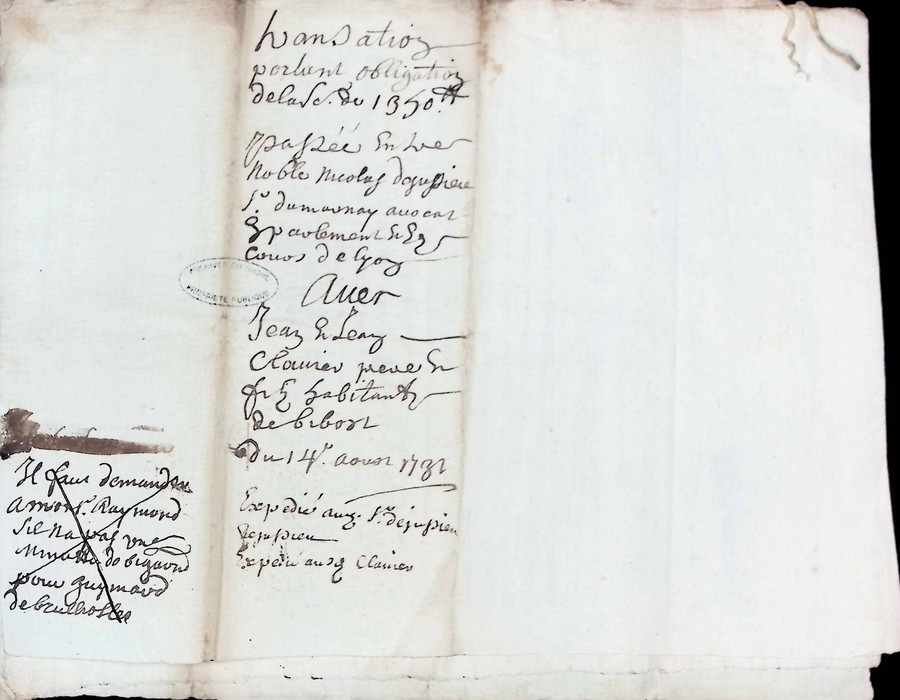 transation
portant obligation
de la Se. de 1350 ₶
passée Entre
Noble Nicolas dejussieu
Sr. dumornay avocat
En parlement Et Es
cours de lyon
Avec
Jean Et Jean
Clavier pere Et
fils habitants
de bibost
du 14e. aoust 1731
Expedié aux Sr. dejussieu
dejussieu
Expedié aux Clavier
ARCHIVES DU RHÔNE
PROPRIÉTÉ PUBLIQUE
Il faut demander
a monsr. Raymond
sil na pas une
Minutte de bigaud
pour guymard
de brulholles